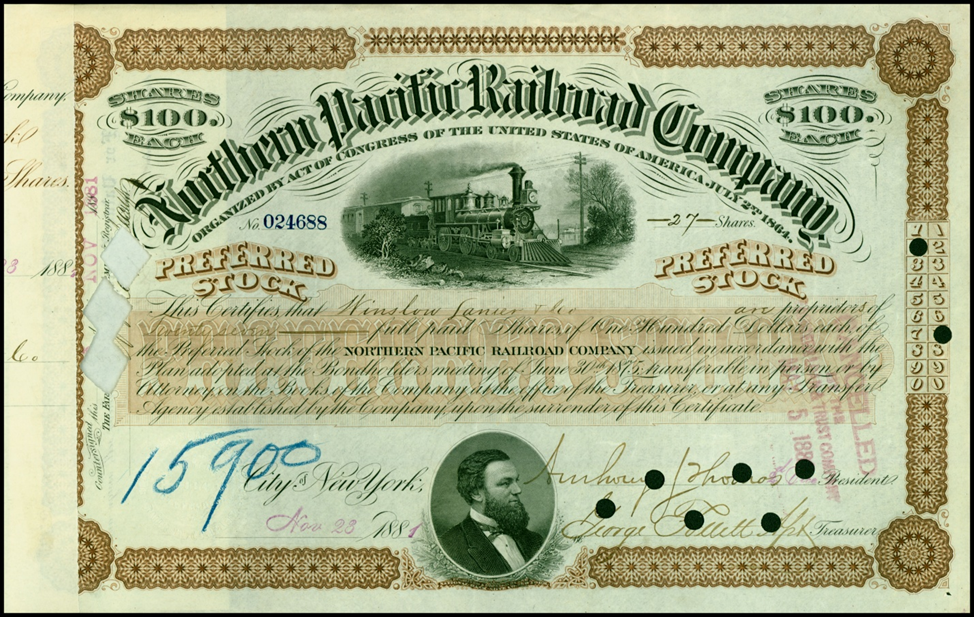 SHARES
$100.
EACH
SHARES
$100.
EACH
Northern Pacific Railroad Company,
ORGANIZED BY ACT OF CONGRESS OF THE UNITED STATES OF AMERICA, JULY 2ND 1864.
No. 024688
—27— Shares.
PREFERRED
STOCK
PREFERRED
STOCK
This Certifies that Winslow Lanier & Co are proprietors of
Twenty seven full paid Shares of One Hundred Dollars each of
the Preferred Stock of the NORTHERN PACIFIC RAILROAD COMPANY issued in accordance with the
Plan adopted at the Bondholders meeting of June 30th 1875, transferable in person or by
Attorney on the Books of the Company at the office of the Treasurer, or at any Transfer
Agency established by the Company, upon the surrender of this Certificate.
15900
City of New York,
Nov. 23 1881
President
Treasurer
Company.
Shares.
23 188
Co
NOV 1881
Countersigned this
THE FAR
CANCELLED
TRUST COMPANY
1 1
2
3 3
4 4
5 5
6 6
7
8 8
9 9
0 0